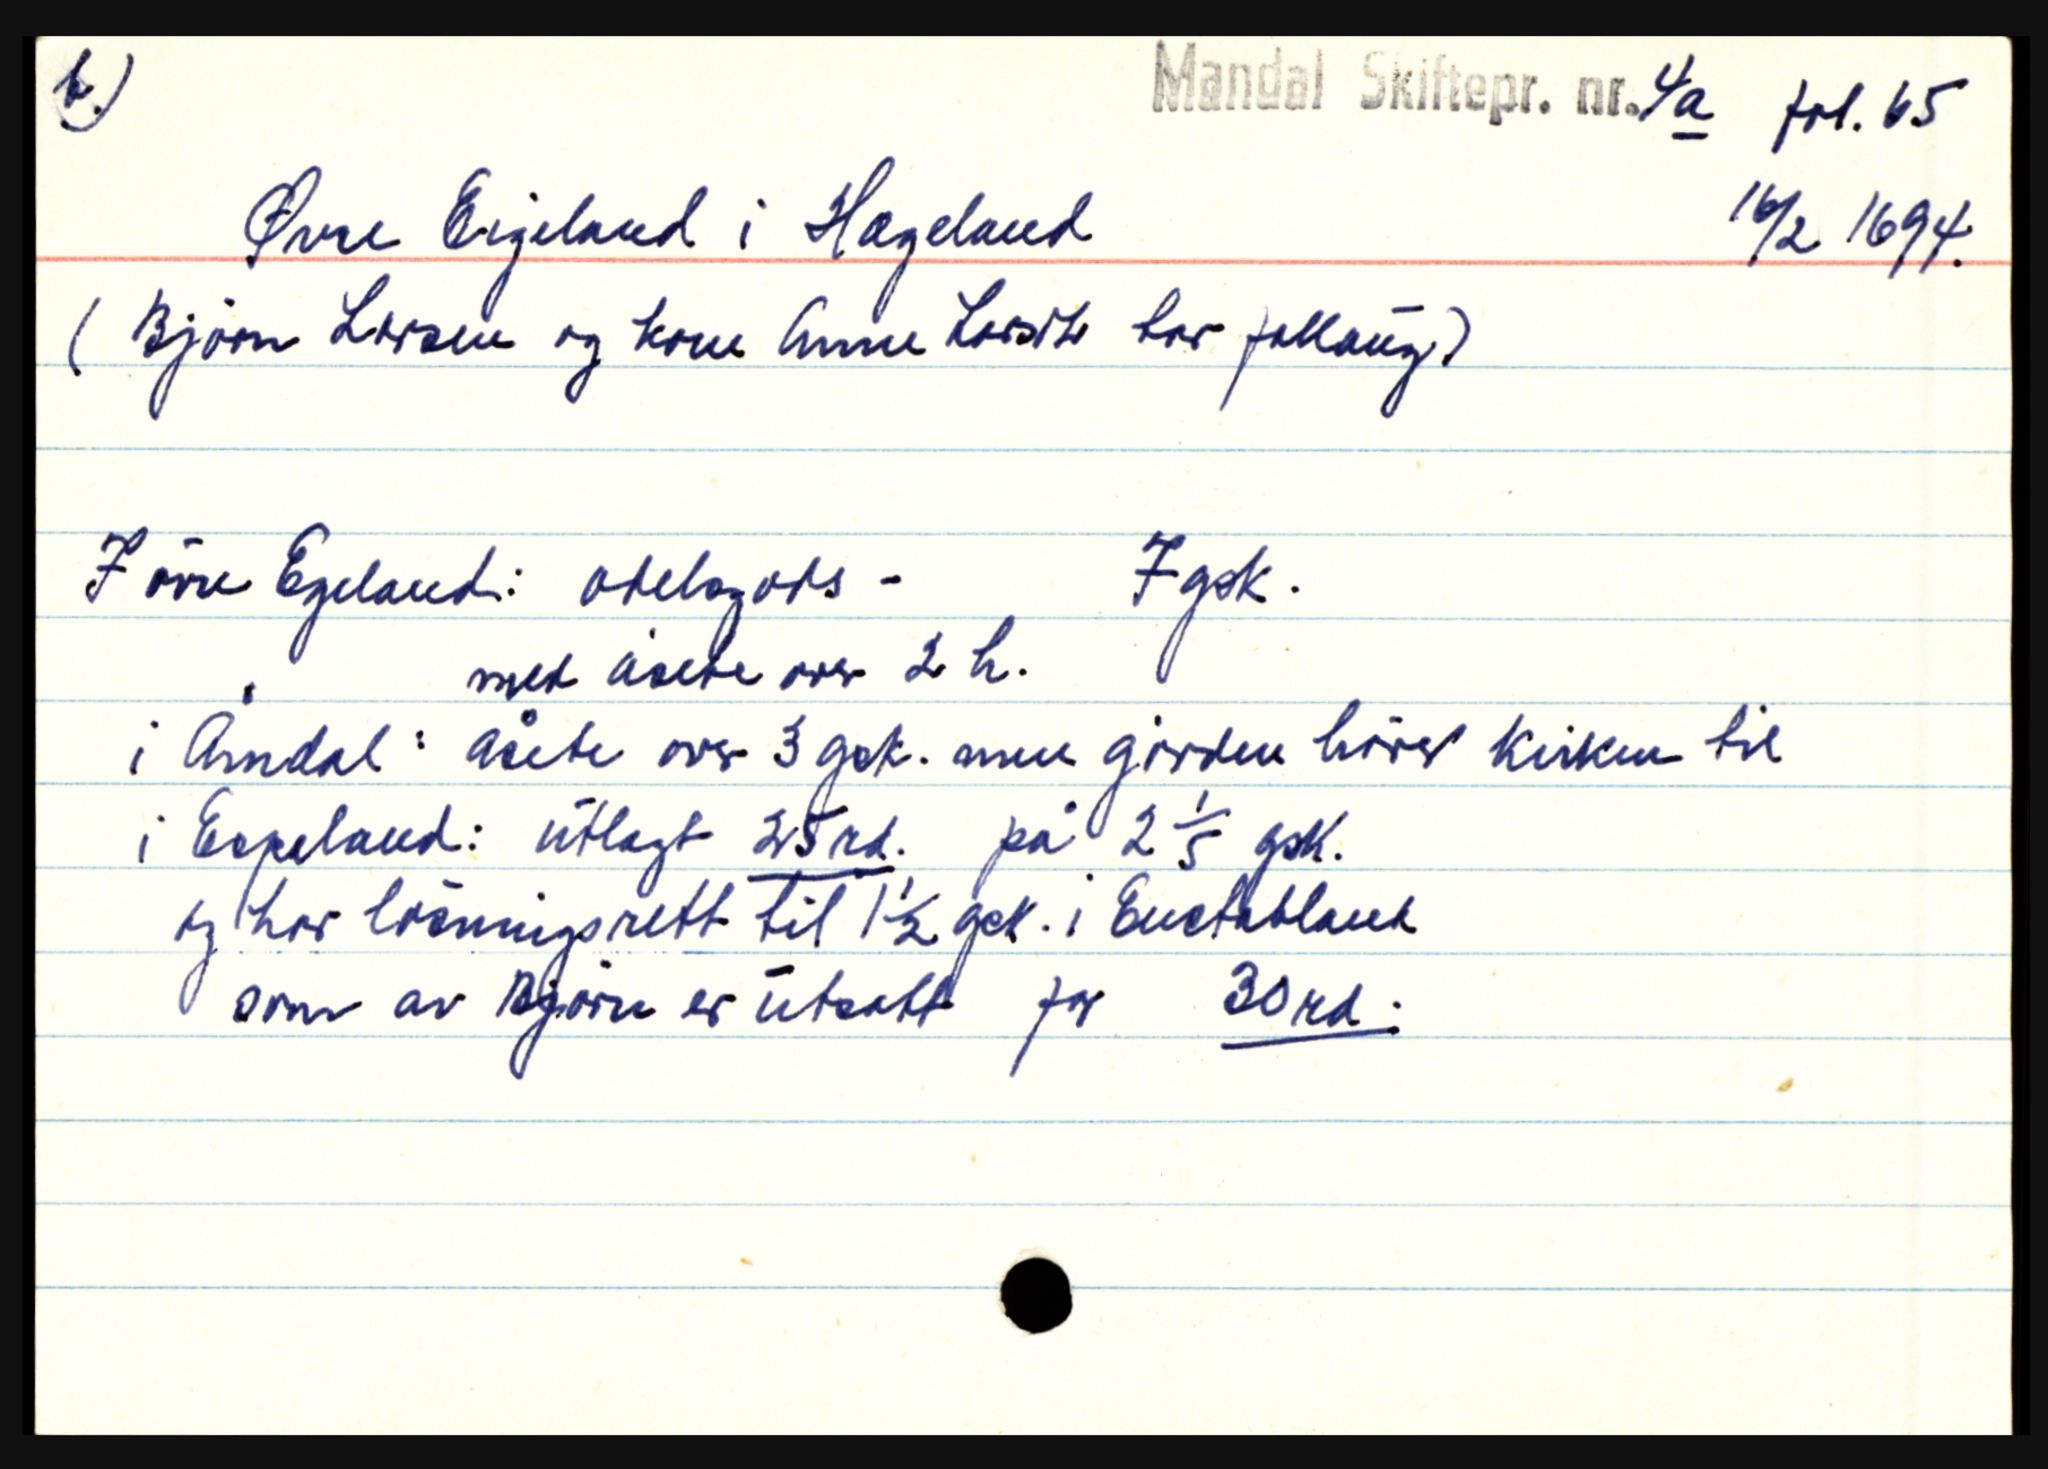 b.)
Mandal Skiftepr. nr. 4a fol. 65
Øvre Eigeland i Hægeland 16/2 1694.
( Björn Larsen og kone Anne Larsdtr tar fallaug)
I övre Egeland: odelsgods - 7 gsk.
med åsete over 2 h.
i Åmdal: åsete over 3 gsk. men gården hörer kirken til
i Espeland: utlagt 25 rd. på 2 1/5 gsk.
og har lösningsrett til 1 1/2 gsk. i Enstabland
som av Björn er utsatt for 30 rd.